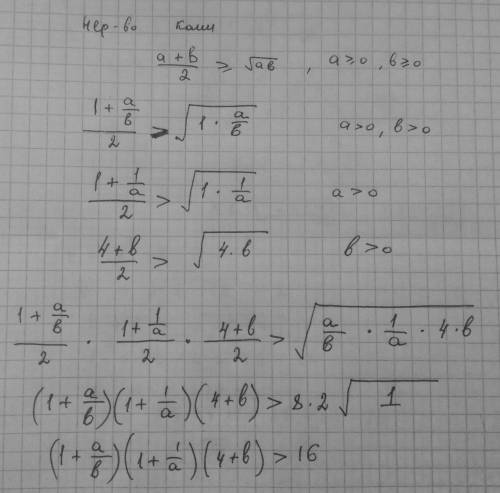 Нер-во Коши
(a+b)/2 ≥ √(ab), a≥0, b≥0
(1 + a/b)/2 > √(1 · a/b) a>0, b>0
(1 + 1/a)/2 > √(1 · 1/a) a>0
(4+b)/2 > √(4·b) b>0
(1 + a/b)/2 · (1 + 1/a)/2 · (4+b)/2 > √(a/b · 1/a · 4·b)
(1 + a/b)(1 + 1/a)(4+b) > 8·2√1
(1 + a/b)(1 + 1/a)(4+b) > 16